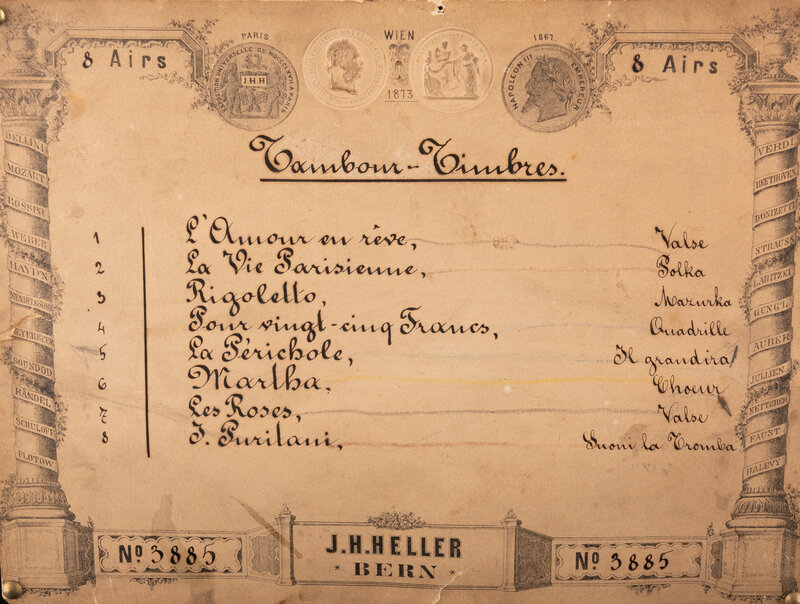 8 Airs
PARIS
WIEN
1873
1867
8 Airs
J.H.H
NAPOLEON III EMPEREUR
Tambour-Timbres.
1 L'Amour en rêve, Valse
2 La Vie Parisienne, Polka
3 Rigoletto, Mazurka
4 Pour vingt-cinq Francs, Quadrille
5 La Périchole, Il grandira
6 Martha. Choeur
7 Les Roses, Valse
8 I. Puritani, Suoni la Tromba
BELLINI
MOZART
ROSSINI
WEBER
HAYDN
MENDELSSOHN
MEYERBEER
GOUNOD
HÄNDEL
SCHULHOFF
FLOTOW
VERDI
BEETHOVEN
DONIZETTI
STRAUSS
LABITZKI
GUNG'L
AUBER
JULLIEN
KETTERER
FAUST
HALEVY
No 3885
J.H.HELLER
BERN
No 3885